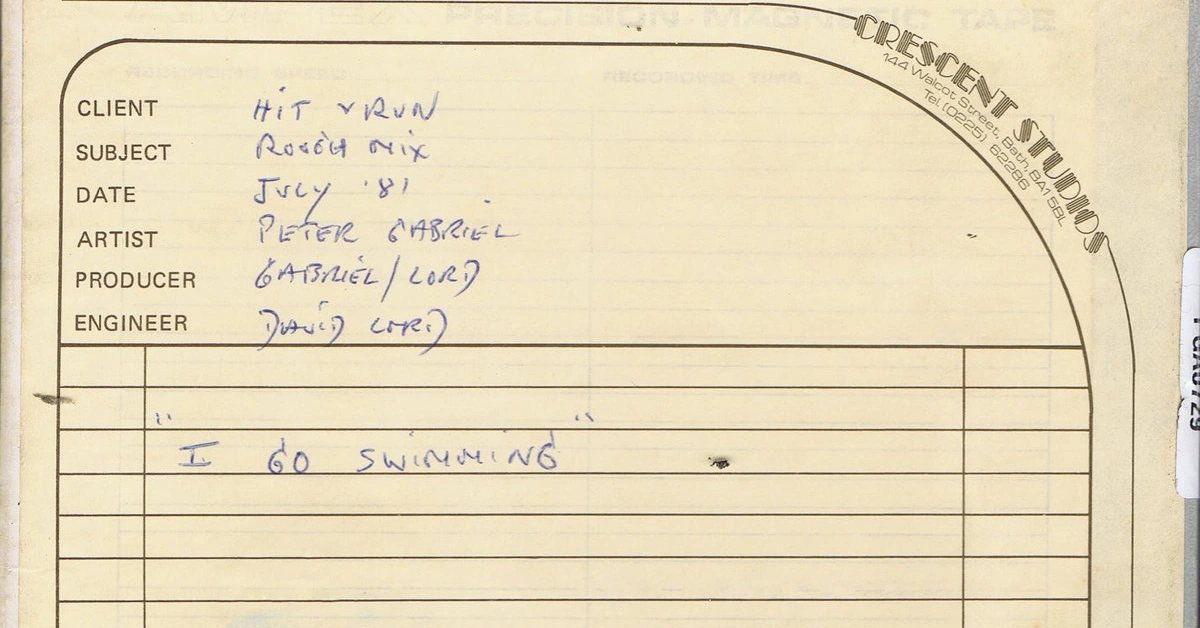 PRECISION MAGNETIC TAPE
RECORDING SPEED
RECORDING TIME
CRESCENT STUDIOS
144 Walcot Street, Bath, BA1 5BL
Tel. (0225) 62286
CLIENT HiT & RUN
SUBJECT ROUGH MiX
DATE JULY '81
ARTIST PETER GABRIEL
PRODUCER GABRIEL/LORD
ENGINEER DAViD LORD
"I GO SWiMMiNG"